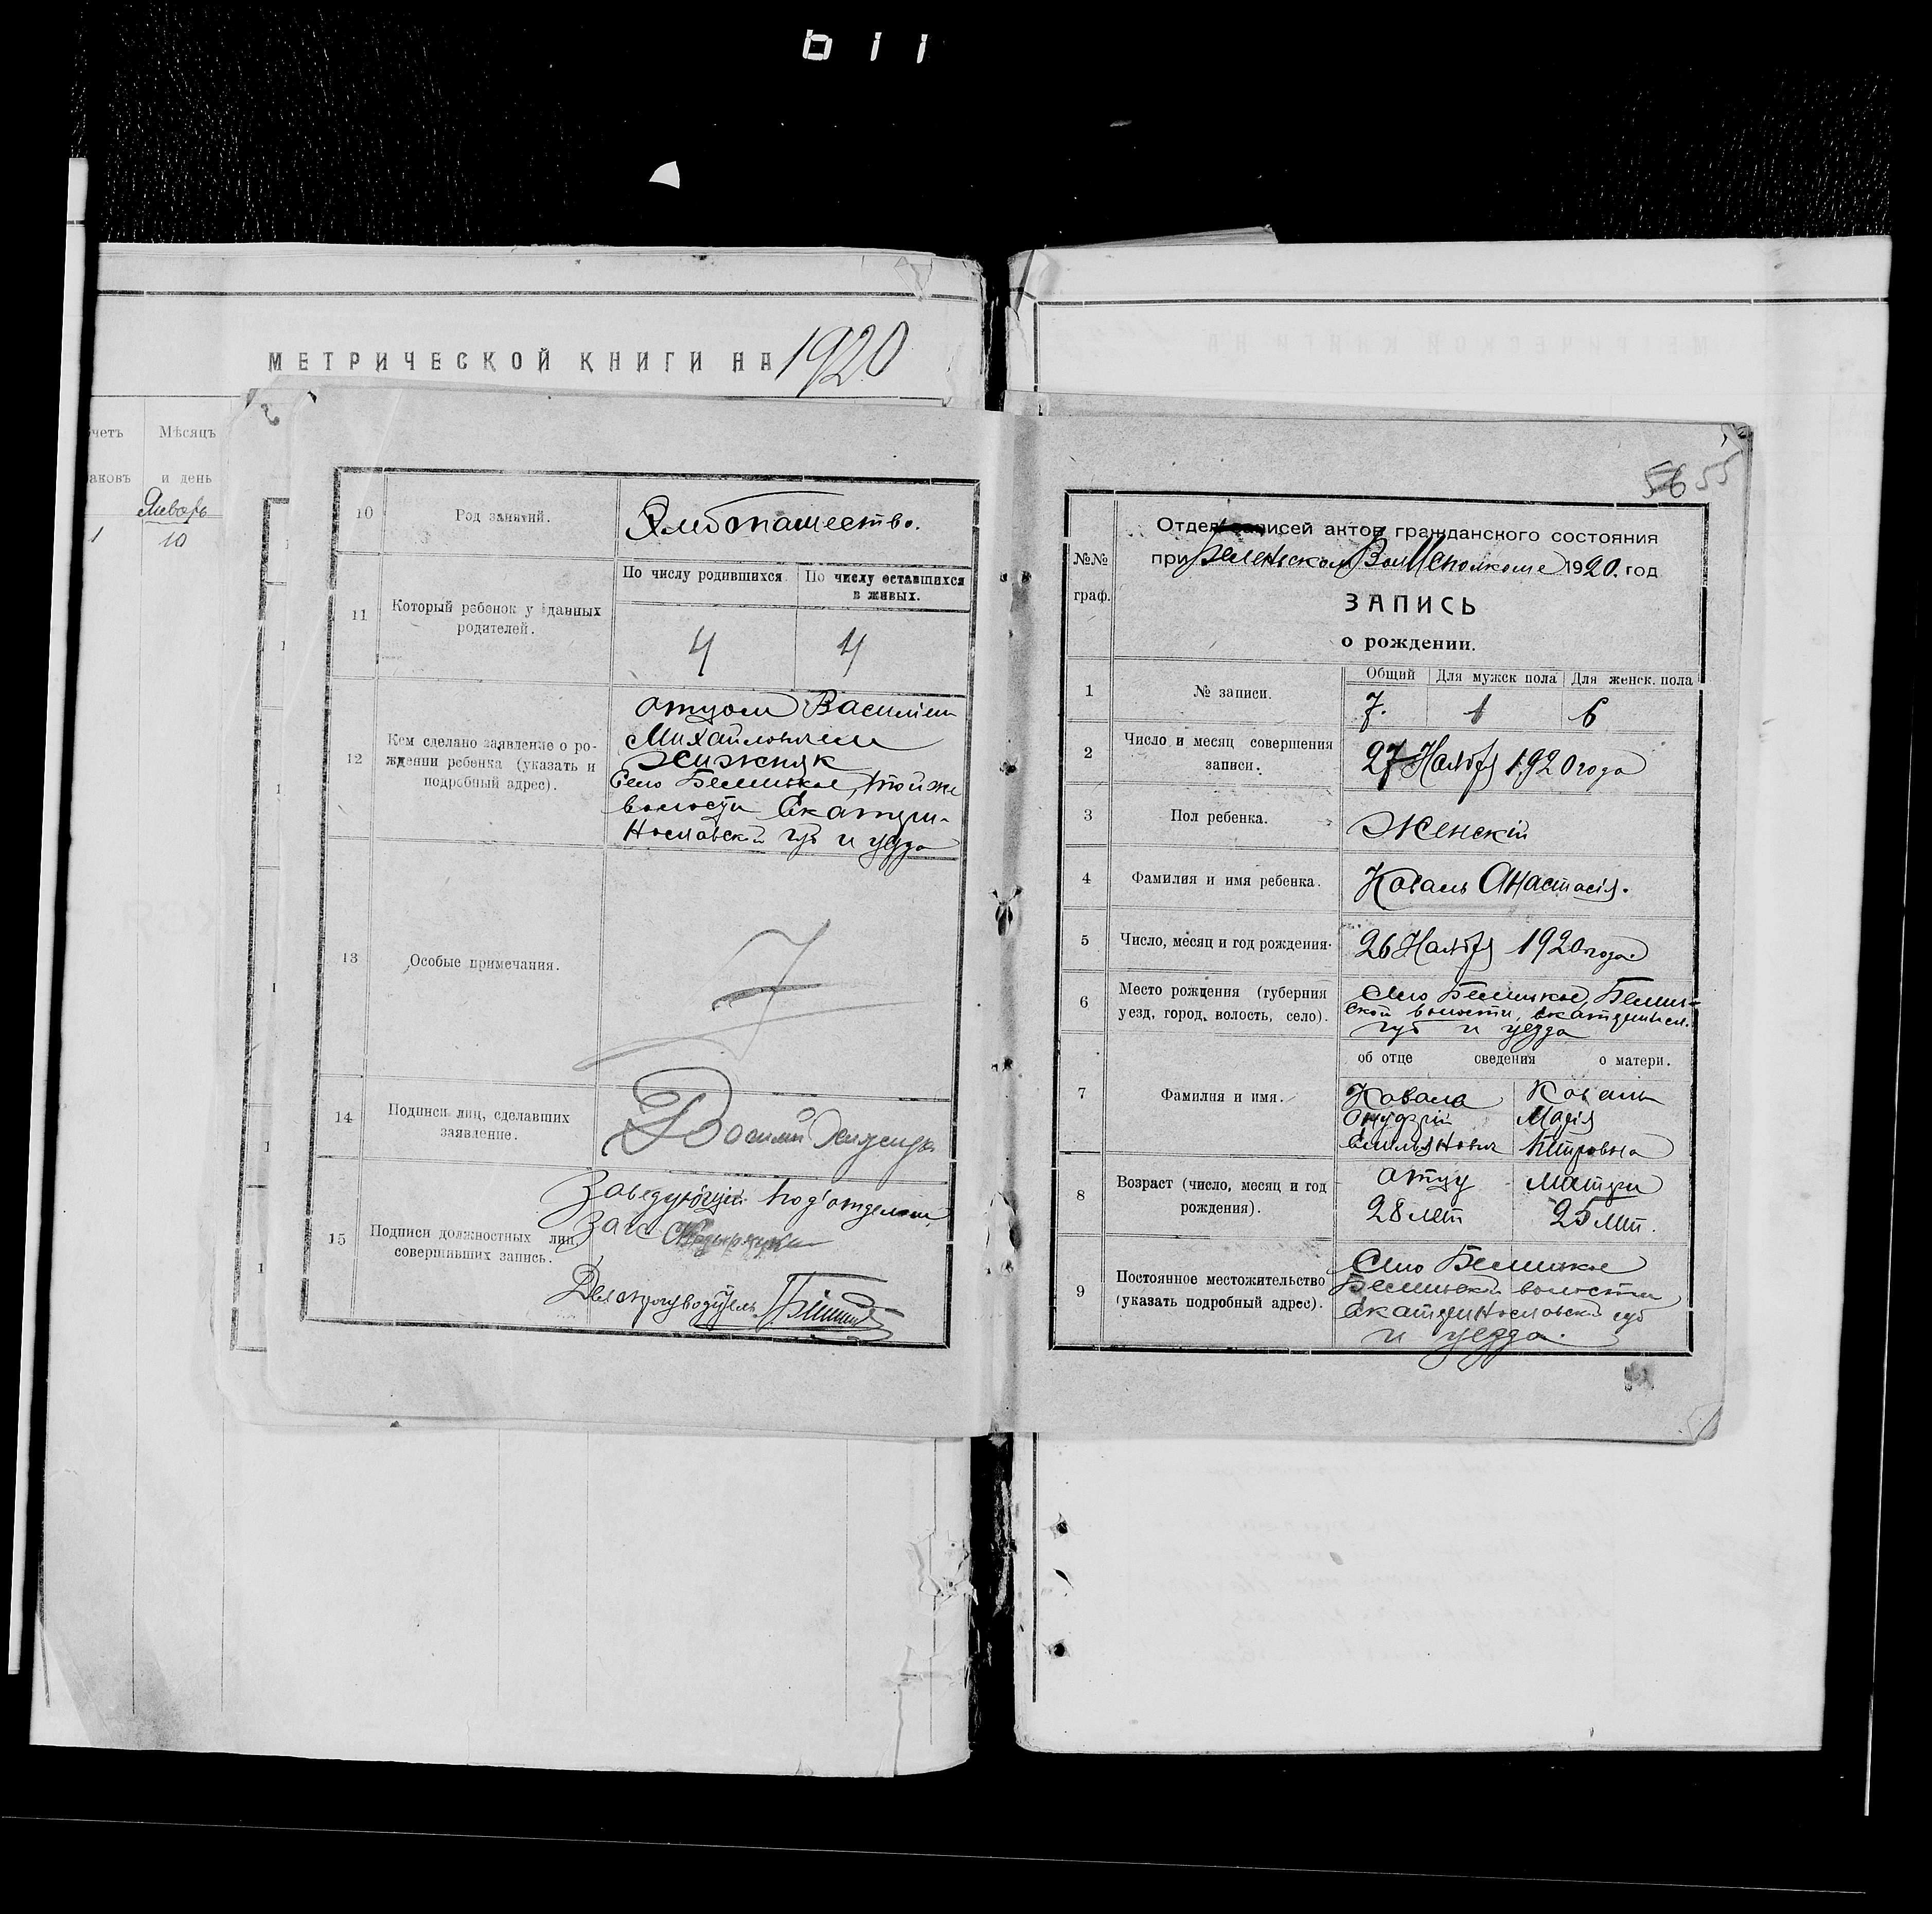 МЕТРИЧЕСКОЙ КНИГИ НА 1920
четъ
Мѣсяцъ
аковъ
и день
Январь
1
10
10
Род занятий.
Хлебопашество.
11
Который ребенок у данных
родителей.
По числу родившихся.
По числу оставшихся
в живых.
4
4
12
Кем сделано заявление о ро-
ждении ребенка (указать и
подробный адрес).
отцом Василием
Михайловичем
Хижняк
Село Беленькое, той же
волости Екатери-
нославской губ и уезда
13
Особые примечания.
7
14
Подписи лиц, сделавших
заявление.
Василий
15
Подписи должностных лиц
совершивших запись.
Заведующій под'отделом
Загс
Делопроизводитель
56 55
№№
граф.
Отдел записей актов гражданского состояния
при Беленьском ВолИсполкоме 1920. год
ЗАПИСЬ
о рождении.
1
№ записи.
Общий
Для мужск пола
Для женск. пола
7.
1
6
2
Число и месяц совершения
записи.
27 Ноября 1920 года
3
Пол ребенка.
Женскій
4
Фамилия и имя ребенка.
Коваль Анастасія.
5
Число, месяц и год рождения.
26 Ноября 1920 года.
6
Место рождения (губерния
уезд, город, волость, село).
Село Беленькое, Белень-
ской волости, Екатериносл.
губ и уезда
7
Фамилия и имя.
об отце сведения о матери.
Коваль
Онуфрій
Емельянович
Коваль
Марія
Петровна
8
Возраст (число, месяц и год
рождения).
отцу
28 лет
матери
25 лет.
9
Постоянное местожительство
(указать подробный адрес).
Село Беленькое
Беленьской волости
Екатеринославской губ
и уезда.